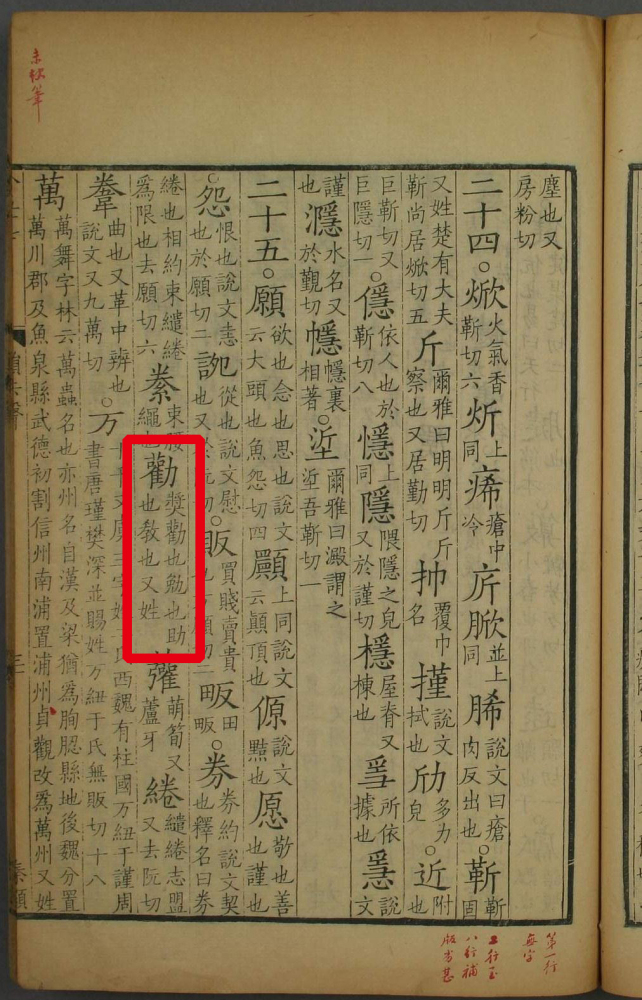 塵也又
房粉切
二十四。焮火氣香靳切六炘上同痟瘡中冷㾙脪並上同脪說文曰瘡肉反出也。靳靳固
又姓楚有大夫靳尚居焮切五斤爾雅曰明明斤斤察也又居勤切㠻覆巾名㨷說文拭也劤多力皃。近附也
巨靳切又巨隱切一。㒚依人也於靳切八㦩上同隱隈隱之皃又於謹切檼屋脊又棟也㕂所依據也㥯說文
謹也濦水名又於覲切㡥㡥裏相著。垽爾雅曰澱謂之垽吾靳切一
二十五。願欲也念也思也說文云大頭也魚怨切四顚上同說文云顚頂也傆說文黠也愿敬也善也謹也
。怨恨也說文恚也於願切二䛄從也說文慰也又於阮切。販買賤賣貴也方願切二畈田畈。券券約說文契也釋名曰券
綣也相約束繾綣為限也去願切六絭束腰繩也勸獎勸也勉也助也教也又姓虇萌筍又蘆牙綣繾綣志盟又去阮切
韏曲也又革中辨也說文又九萬切。万十千又虜三字姓西魏有柱國万紐于謹周書唐瑾樊深並賜姓万紐于氏無販切十八
萬萬舞字林云萬蟲名也亦州名自漢及梁猶為朐䏰縣地後魏分置萬川郡及魚泉縣武德初割信州南浦置浦州貞觀改為萬州又姓